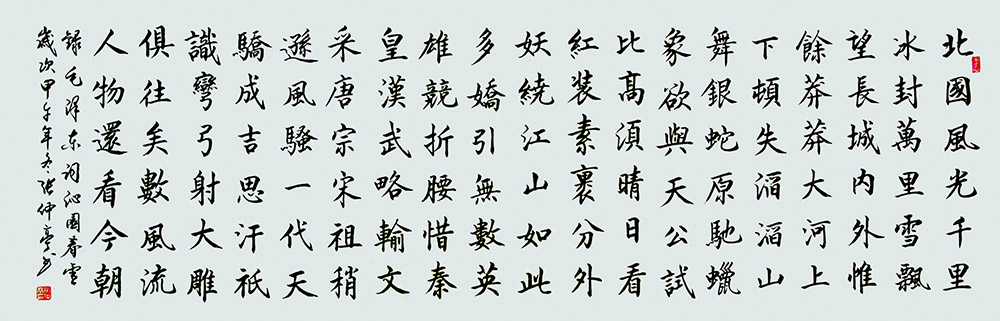 北國風光千里
冰封萬里雪飄
望長城内外惟
餘莽莽大河上
下頓失滔滔山
舞銀蛇原馳蠟
象欲與天公試
比高須晴日看
紅装素裹分外
妖繞江山如此
多嬌引無數英
雄競折腰惜秦
皇漢武略輸文
采唐宗宋祖稍
遜風騷一代天
驕成吉思汗祇
識彎弓射大雕
俱往矣數風流
人物還看今朝
録毛澤東詞沁園春雪
歲次甲午年冬張仲亭書